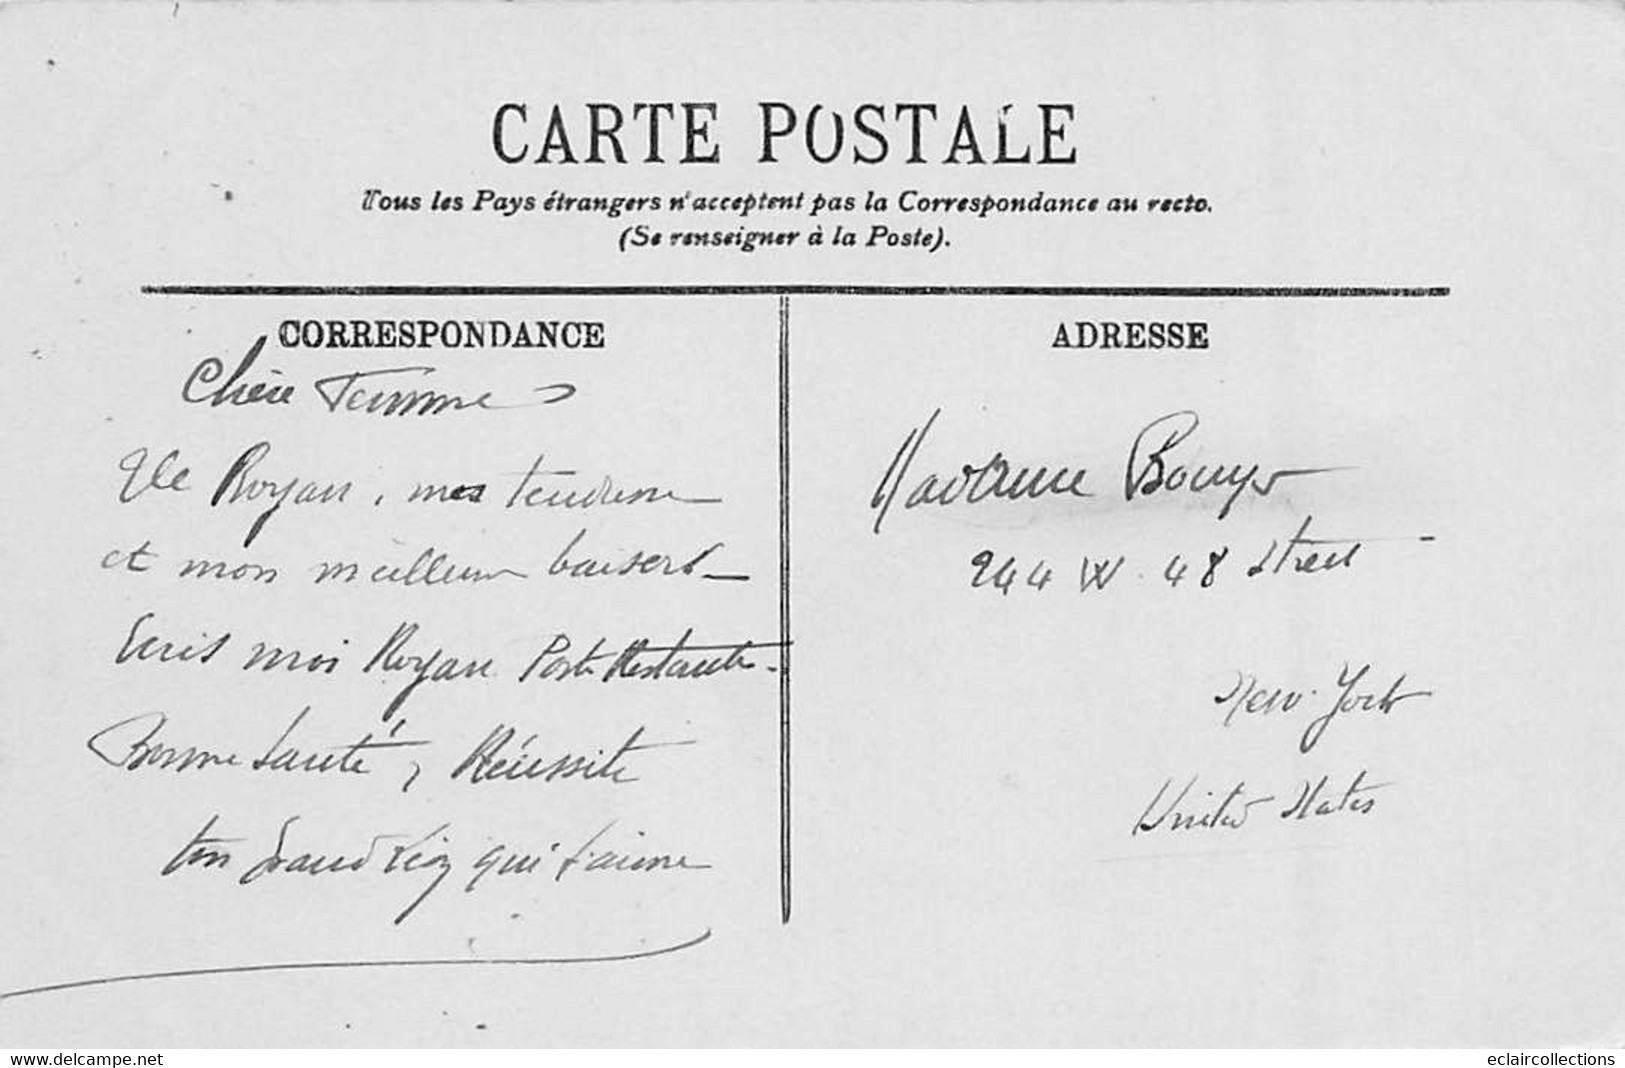 CARTE POSTALE
Tous les Pays étrangers n'acceptent pas la Correspondance au recto.
(Se renseigner à la Poste).
CORRESPONDANCE
ADRESSE
Chère Femme
De Royan, mes tendresse
et mon meilleur baisers
Ecris moi Royan Poste Restante.
Bonne Santé, Réussite
ton Grand qui t'aime
Madame Bouys
244 W. 48 Street
New-York
United States
www.delcampe.net
eclaircollections